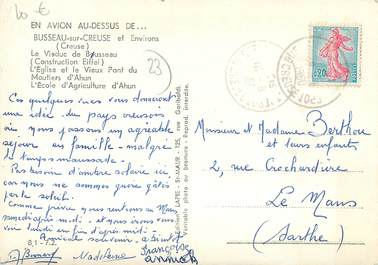 10 €
EN AVION AU-DESSUS DE...
BUSSEAU-sur-CREUSE et Environs
(Creuse)
Le Viaduc de Busseau
(Construction Eiffel)
L'Eglise et le Vieux Pont du
Moutiers d'Ahun
L'Ecole d'Agriculture d'Ahun
23
0,20
Ces quelques vues vous donneront
une idée du pays creusois
où nous passons un agréable
séjour en famille - malgré
le temps maussade.
Pas besoin d'ambre solaire ici
car nous ne sommes guère gâtés
par le soleil.
Comme prévu nous rentrons au Mans
samedi après-midi et nous irons vous
voir lundi en fin d'après-midi.
Amicale souvenir à bientôt
Madeleine
Françoise
Annick
Editions LAPIE - St-MAUR - 125, rue Garibaldi
Véritable photo au bromure - Reprod. interdite.
Monsieur et Madame Berthou
et leurs enfants
2, rue Crochardière
Le Mans
(Sarthe)